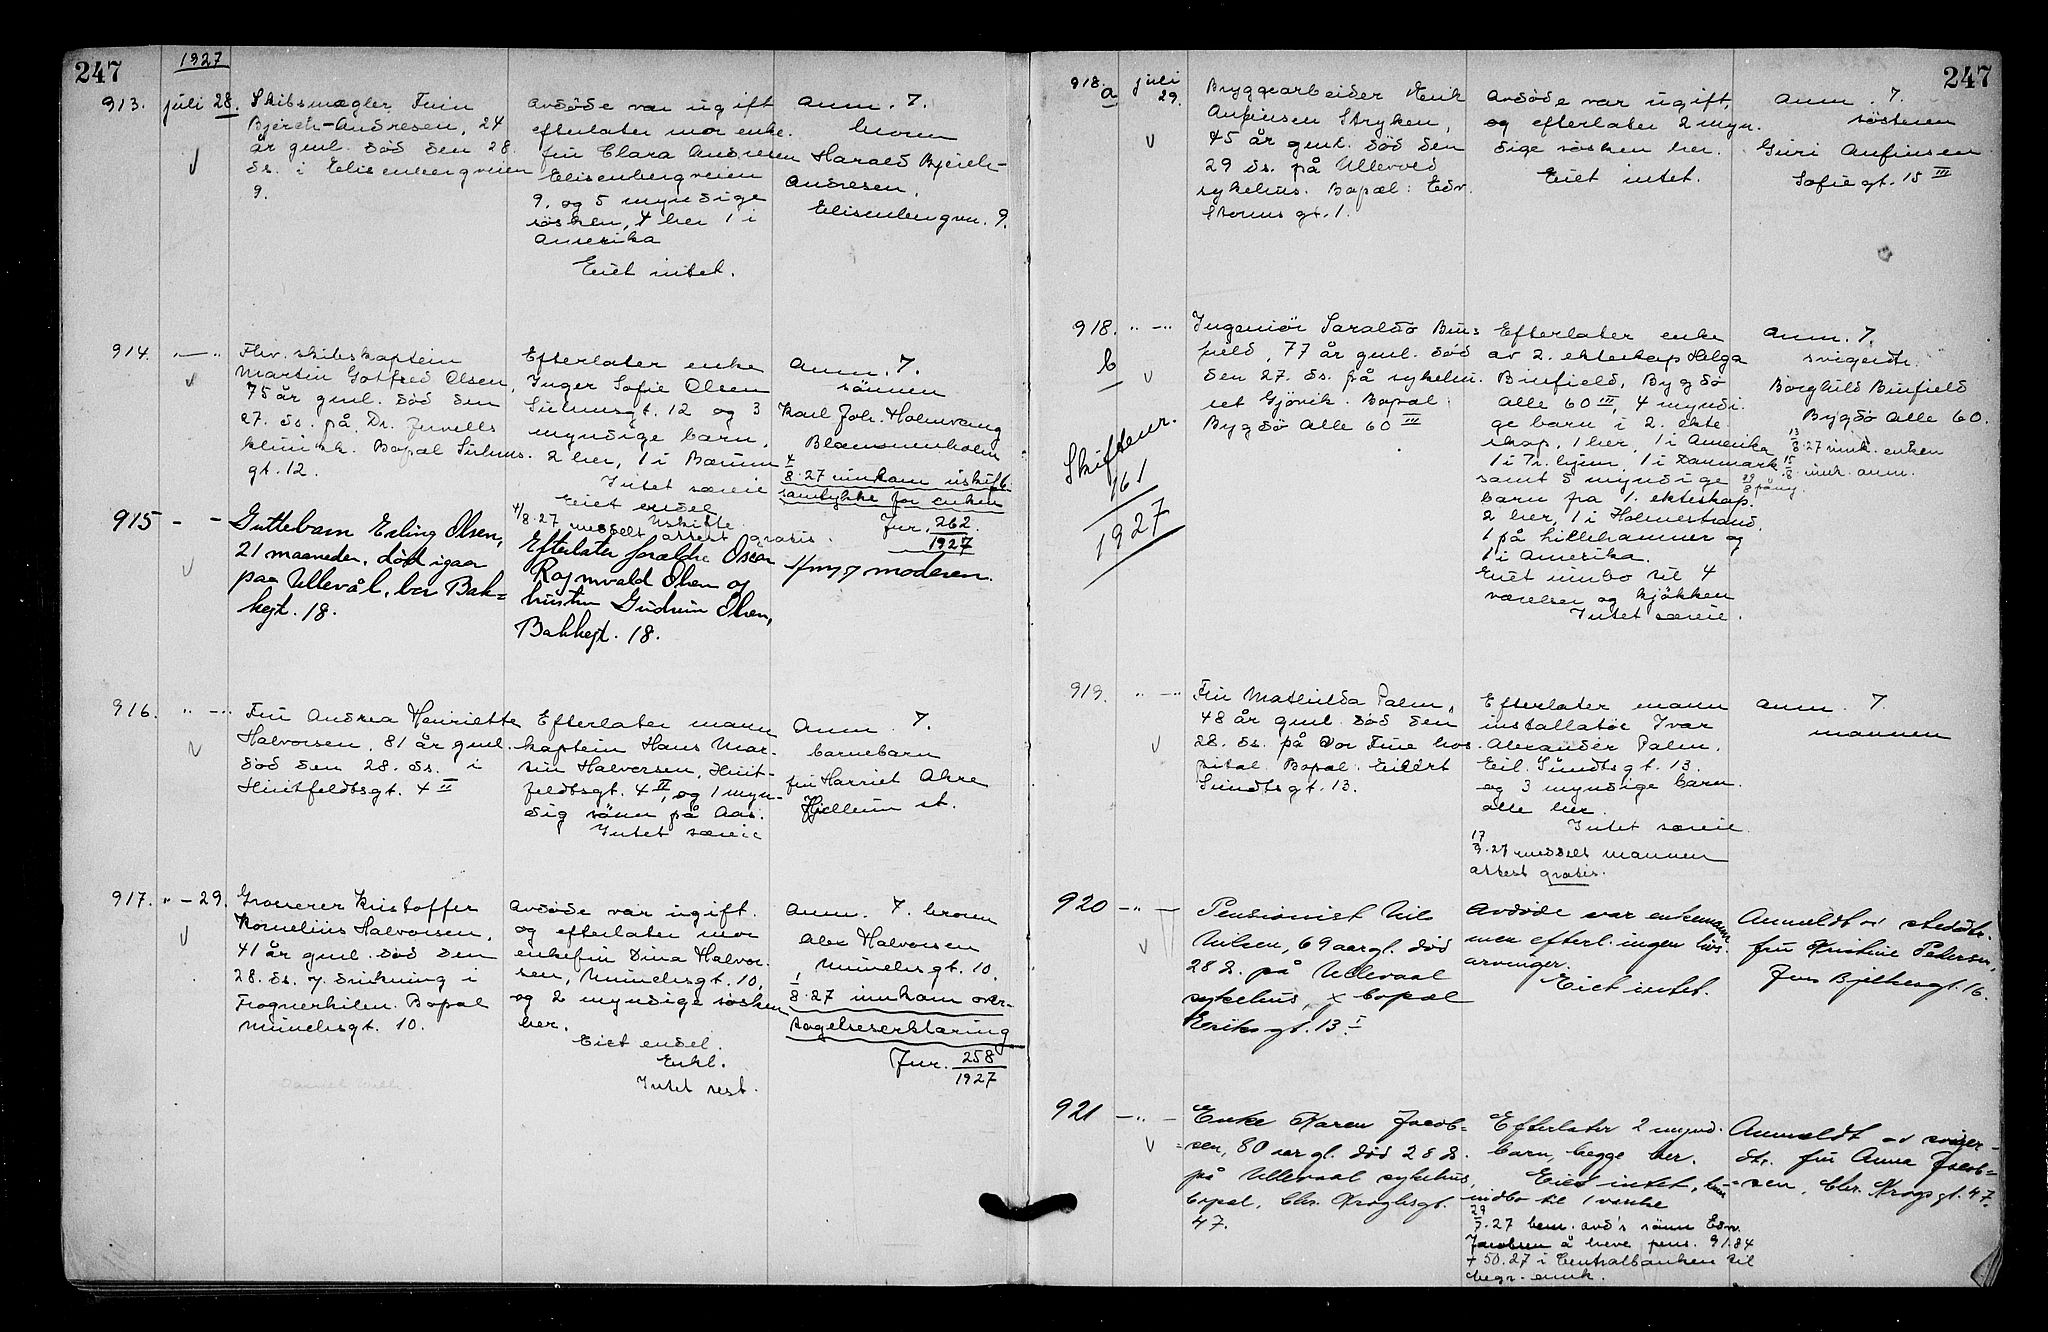 247
1927
913.
juli 28.
Skibsmægler Finn
Bjerch-Andresen, 24
år gml. død den 28.
ds. i Elisenbergveien
9.
Avdøde var ugift
efterlater mor enke-
fru Clara Andresen
Elisenbergveien
9. og 5 myndige
søsken, 4 her 1 i
Amerika
Eiet intet.
Anm. 7.
broren
Harald Bjerch-
Andresen,
Elisenbergvn. 9.
914.
" — "
Fhv. skibskaptein
Martin Gotfred Olsen,
75 år gml. død den
27. ds. på Dr.
klinikk. Bopæl Suhms-
gt. 12.
Efterlater enke
Inger Sofie Olsen
Suhmsgt. 12 og 3
myndige barn,
2 her, 1 i Bærum
Intet særeie
Eiet endel
Uskifte
4/8.27 meddelt attest gratis.
Anm. 7.
sønnen
Karl Joh. Holmvang
Blommenholm
4/8.27 innkom uskift.
samtykke for enken
Jnr. 262
1927
915
— " —
Guttebarn Erling Olsen,
21 maaneder, död igaar
paa Ullevål, bor Bak-
kegt. 18.
Efterlater forældre Oscar
Ragnvald Olsen og
hustru Gudrun Olsen,
Bakkegt. 18.
moderen.
916.
" — "
Fru Andrea Henriette
Halvorsen, 81 år gml.
død den 28. ds. i
Huitfeldtsgt. 4 II
Efterlater mann
kaptein Hans Mar-
tin Halvorsen, Huit-
feldtsgt. 4 II, og 1 myn-
dig sønn på Aas.
Intet særeie
Anm. 7.
barnebarn
fru Harriet Ahre
Hjellum st.
917.
" — 29.
Graverer Kristoffer
Kornelius Halvorsen,
41 år gml. død den
28. ds. v. drukning i
Frognerkilen. Bopæl
Munchsgt. 10.
Avdøde var ugift.
og efterlater mor
enkefru Dina Halvor-
sen, Munchsgt. 10,
og 2 myndige søsken
her.
Eiet endel.
Enkl.
Intet test.
Anm. 7. broren
Alex Halvorsen
Munchsgt. 10.
1/8.27 innkom over-
tagelseserklæring
Jnr. 258
1927
247
918.
a
juli
29.
Bryggearbeider Henik
Anfinsen Stryken,
45 år gml. død den
29 ds. på Ullevold
sykehus. Bopæl: Edv.
Storms gt. 1.
Avdøde var ugift,
og efterlater 2 myn-
dige søsken her.
Eiet intet.
Anm. 7.
søsteren
Guri Anfinsen
Sofiegt. 15 III
918.
b
" — "
Skiftenr.
161
1927
Ingeniør Saraldo Bin-
field, 77 år gml. død
den 27. ds. på sykehu-
set Gjøvik. Bopæl:
Bygdø Alle 60 III
Efterlater enke
av 2. ekteskap Helga
Binfield, Bygdø
Alle 60 III, 4 myndi-
ge barn i 2. ekte-
skap, 1 her, 1 i Amerika
1 i Tr.hjem, 1 i Danmark
samt 5 myndige
barn fra 1. ekteskap.
2 her, 1 i Holmestrand,
1 på Lillehammer og
1 i Amerika.
Eiet innbo til 4
værelser og kjøkken
Intet særeie.
Anm. 7.
svigerdtr.
Borghild Binfield
Bygdø Alle 60.
13/8.27 innk. enken
15/8. innk. anm.
919.
" — "
Fru Mathilda Palm,
48 år gml. død den
28. ds. på Vor Frue hos-
pital. Bopæl: Eilert
Sundtsgt. 13.
Efterlater mann
installatør Ivar
Alexander Palm,
Eil. Sundtsgt. 13.
og 3 myndige barn.
alle her.
Intet særeie.
17/9.27 meddelt mannen
attest gratis.
Anm. 7.
mannen
920
— " —
Pensionist Nil
Nilsen, 69 aar gl. død
28 ds. på Ullevaal
sykehus, bopæl
Eriksgt. 13. I
Avdøde var enkemann
men efterl. ingen livs-
arvinger.
Eiet intet.
Anmeldt av steddtr.
fru Kristine Pedersen,
Jens Bjelkesgt. 16.
921
— " —
Enke Karen Jacob-
sen, 80 aar gl. død 28 ds.
på Ullevaal sykehus,
bopæl, Chr. Kroghsgt.
47.
Efterlater 2 mynd.
barn, begge her.
Eiet intet, kun
indbo til 1 værelse
29/7.27 bem. avd's sønn Edv.
Jacobsen å heve pens. 91.84
+ 50.27 i Centralbanken til
begr. omk.
Anmeldt av sviger-
dtr. fru Anna Jacob-
sen, Chr. Krogsgt. 47.